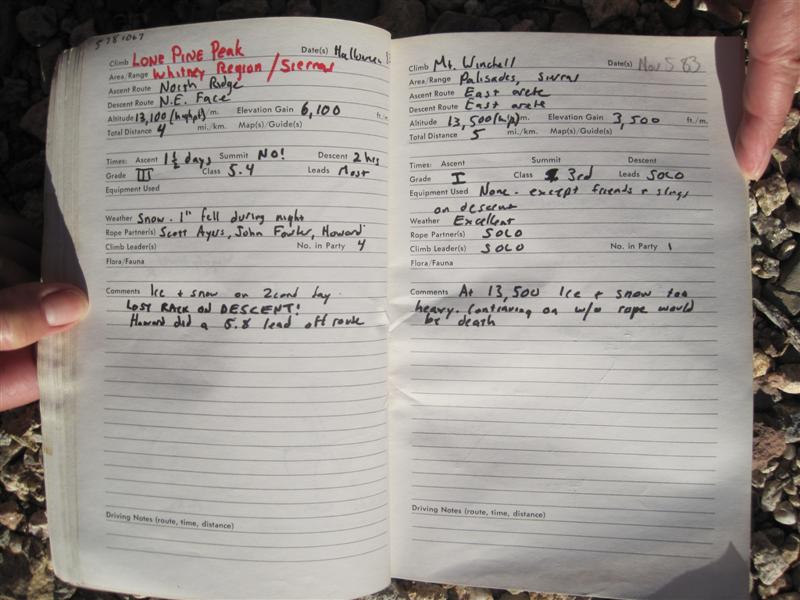 5781067
Climb LONE PINE PEAK Date(s) Halloween
Area/Range Whitney Region / Sierras
Ascent Route North Ridge
Descent Route N.E. Face
Altitude 13,100 (high pt) /m. Elevation Gain 6,100 ft./m.
Total Distance 4 mi./km. Map(s)/Guide(s)
Times: Ascent 1½ days Summit NO! Descent 2 hrs
Grade III Class 5.4 Leads Most
Equipment Used
Weather Snow. 1" fell during night
Rope Partner(s) Scott Ayers, John Fowler, Howard
Climb Leader(s) No. in Party 4
Flora/Fauna
Comments Ice + snow on 2cond day.
LOST RACK ON DESCENT!
Howard did a 5.8 lead off route
Driving Notes (route, time, distance)
Climb Mt. Winchell Date(s) Nov 5 83
Area/Range Palisades, Sierras
Ascent Route East arete
Descent Route East arete
Altitude 13,500 (hp) /m. Elevation Gain 3,500 ft./m.
Total Distance 5 mi./km. Map(s)/Guide(s)
Times: Ascent Summit Descent
Grade I Class 3rd Leads SOLO
Equipment Used None. except friends + slings
on descent
Weather Excellent
Rope Partner(s) SOLO
Climb Leader(s) SOLO No. in Party 1
Flora/Fauna
Comments At 13,500 Ice + snow too
heavy. Continuing on w/o rope would
be death
Driving Notes (route, time, distance)